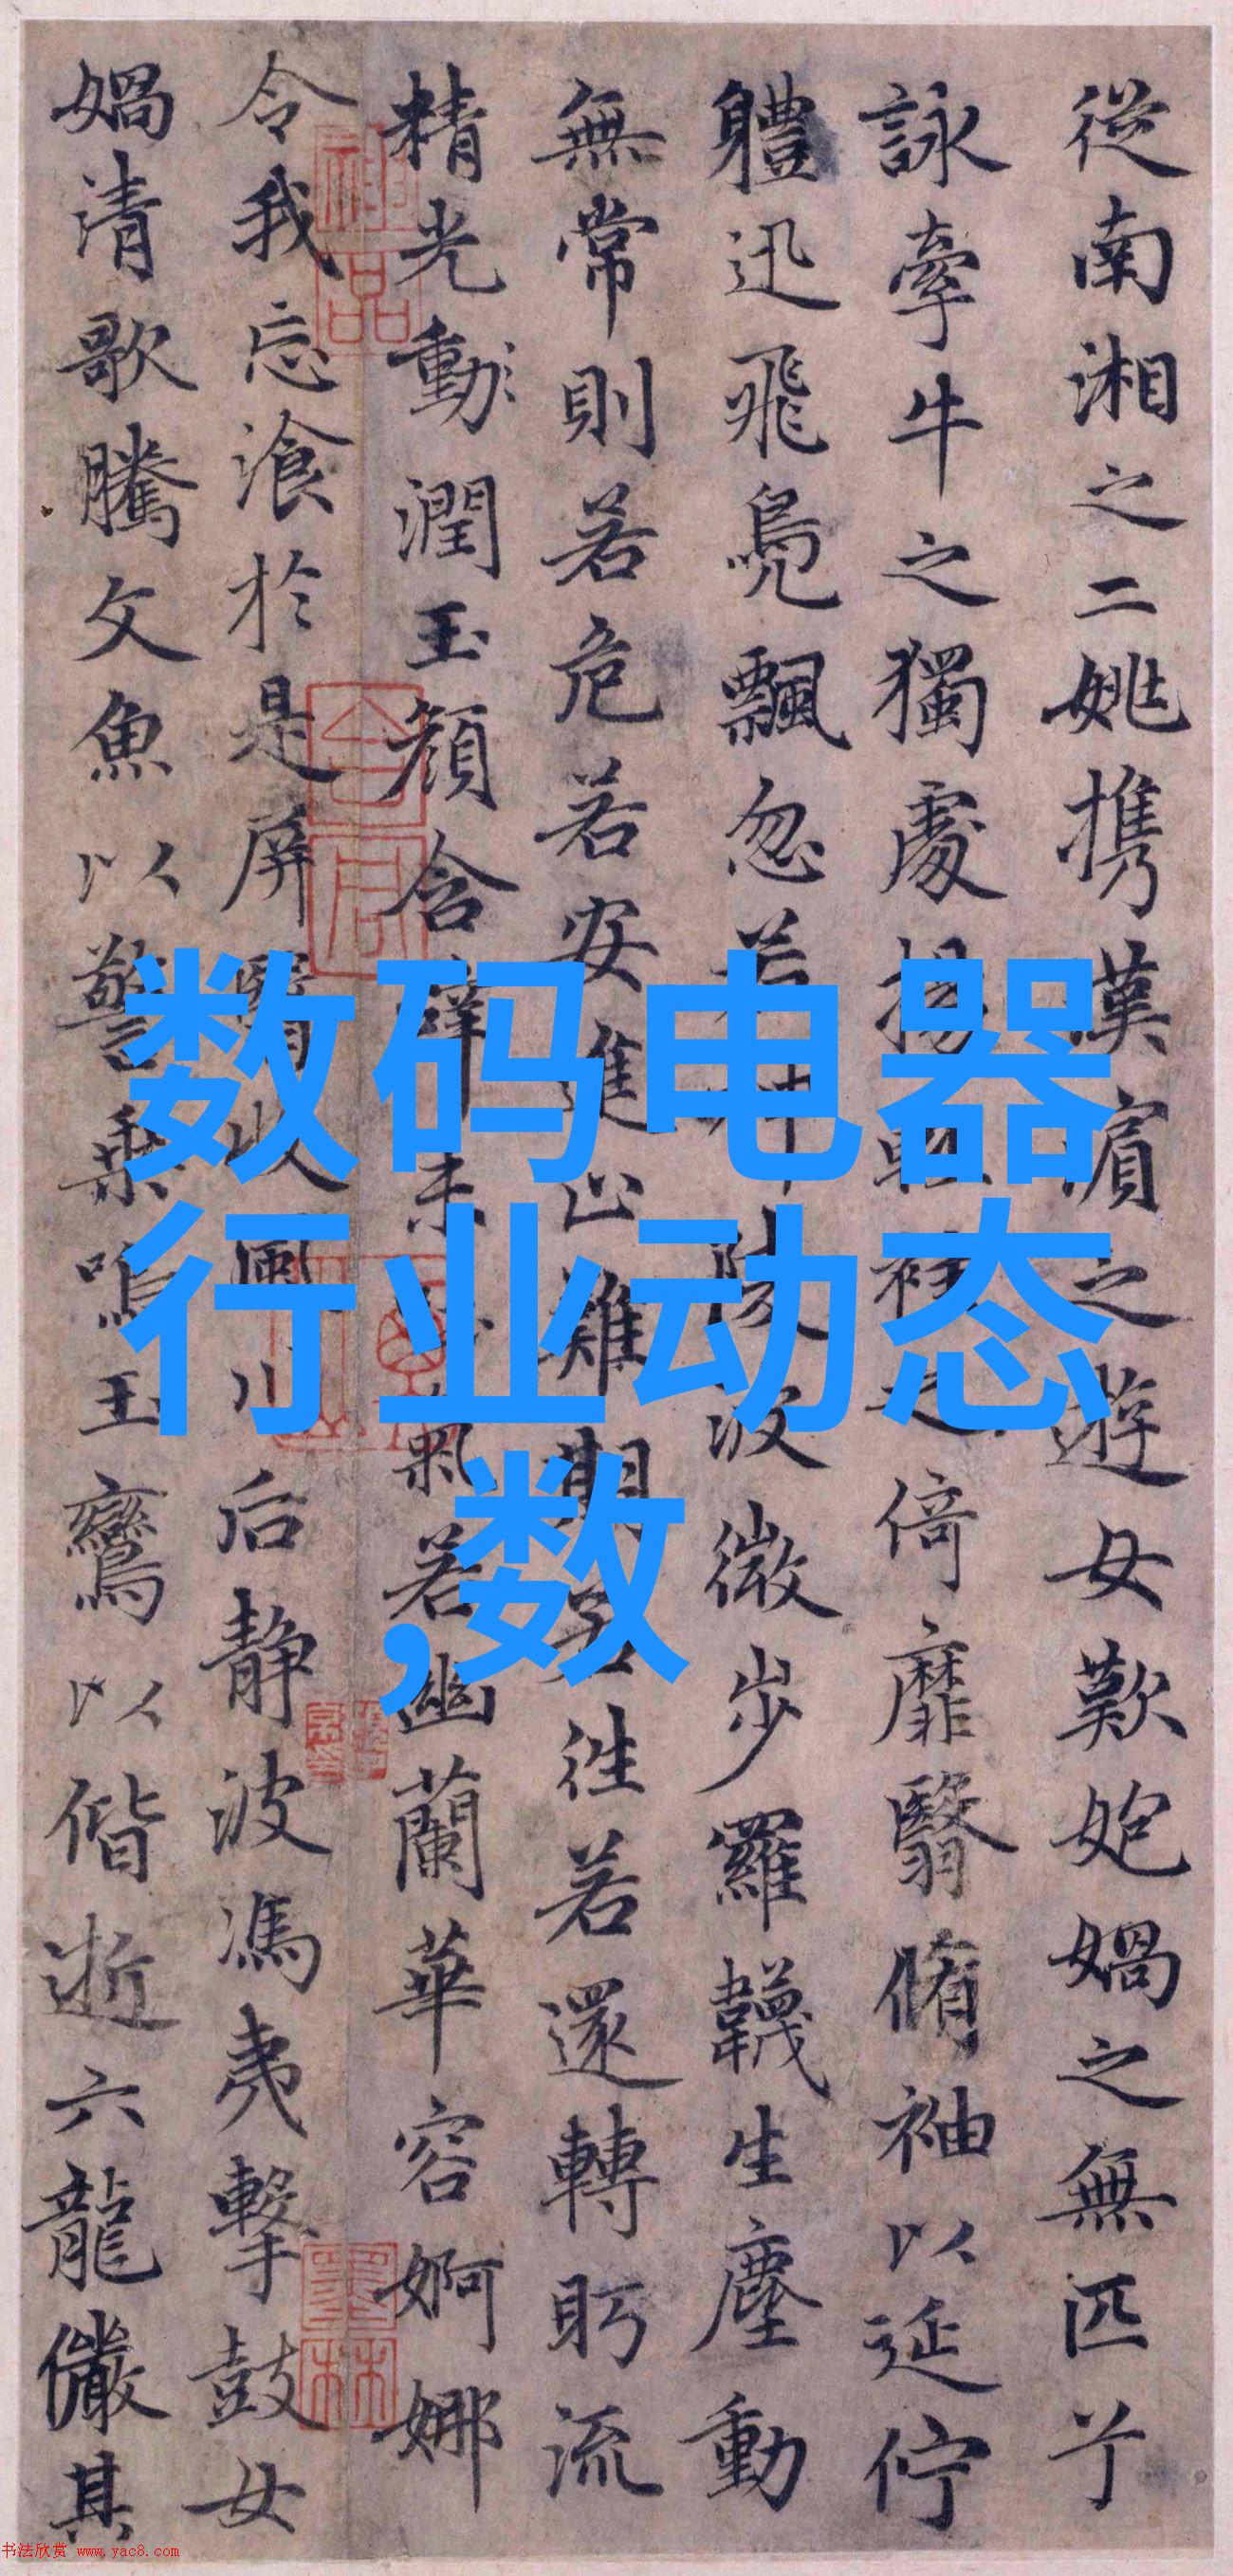 從南湘之二姚携漢濵之遊女歎㚿媧之無匹兮
詠牽牛之獨處揚輕袿之倚靡翳脩袖以延佇
軆迅飛鳧飄忽若神陵波微步羅韈生塵動
無常則若危若安進止難期若往若還轉眄流
精光動潤玉顔含辭未吐氣若幽蘭華容婀娜
令我忘飡於是屏翳收風川后静波馮夷擊鼓女
媧清歌騰文魚以警乘鳴玉鸞以偕逝六龍儼其
神品
数码电器
行业动态
,数
书法欣赏 www.yac8.com